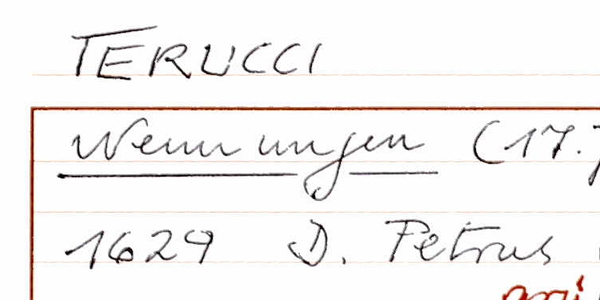 TERUCCI
Wemmungen (17.)
1629 D. Petrus